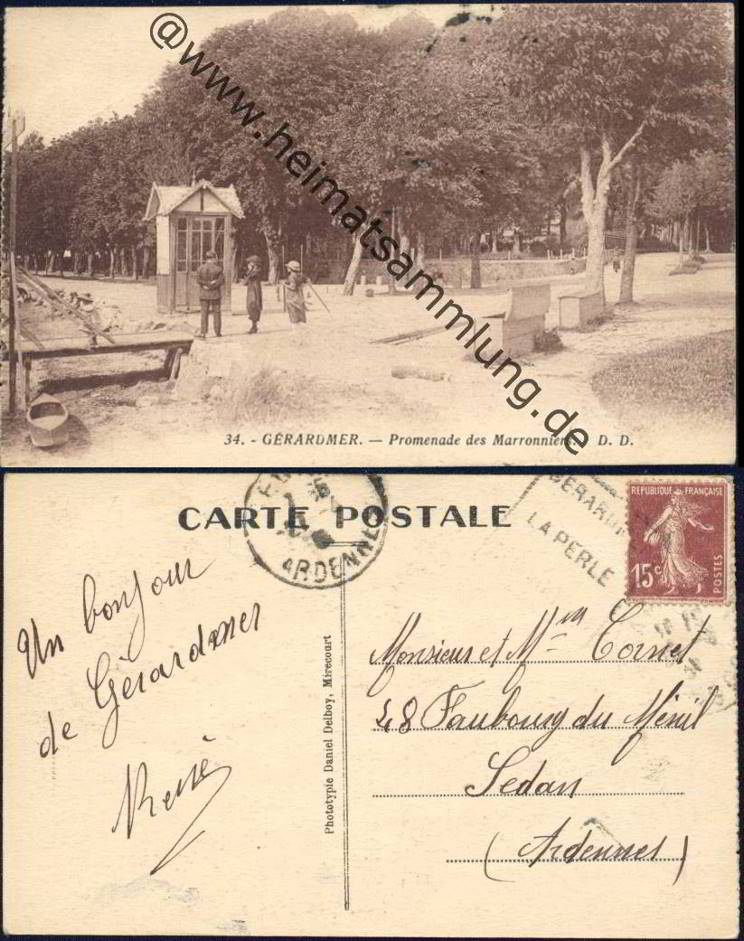 @www.heimatsammlung.de
34. - GÉRARDMER. — Promenade des Marronniers. D. D.
CARTE POSTALE
ARDENNE
GÉRARDM
LA PERLE
REPUBLIQUE FRANÇAISE
15c
POSTES
Un bonjour
de Gérardmer
René
Phototypie Daniel Delboy, Mirecourt
Monsieur et Mme Cornet
48 Faubourg du Ménil
Sedan
(Ardennes)